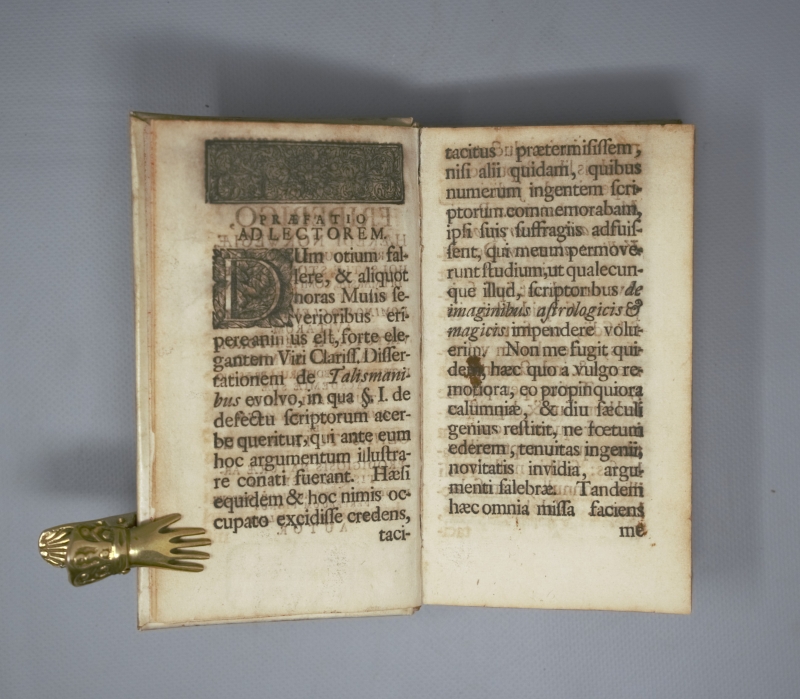 PRÆFATIO
AD LECTOREM.
DUm otium fal-
lere, & aliquot
horas Musis se-
verioribus eri-
pere animus est, forte ele-
gantem Viri Clariss. Disser-
tationem de Talismani-
bus evolvo, in qua §. I. de
defectu scriptorum acer-
be queritur, qui ante eum
hoc argumentum illustra-
re conati fuerant. Hæsi
equidem & hoc nimis oc-
cupato excidisse credens,
taci-
tacitus prætermisissem,
nisi alii quidam, quibus
numerum ingentem scri-
ptorum commemorabam,
ipsi suis suffragiis adfuis-
sent, qui meum permove-
runt studium, ut qualecun-
que illud, scriptoribus de
imaginibus astrologicis &
magicis impendere volu-
erim. Non me fugit qui-
dem hæc quo a vulgo re-
motiora, eo propinquiora
calumniæ, & diu sæculi
genius restitit, ne fœtum
ederem, tenuitas ingenii,
novitatis invidia, argu-
menti salebræ. Tandem
hæc omnia missa faciens
me